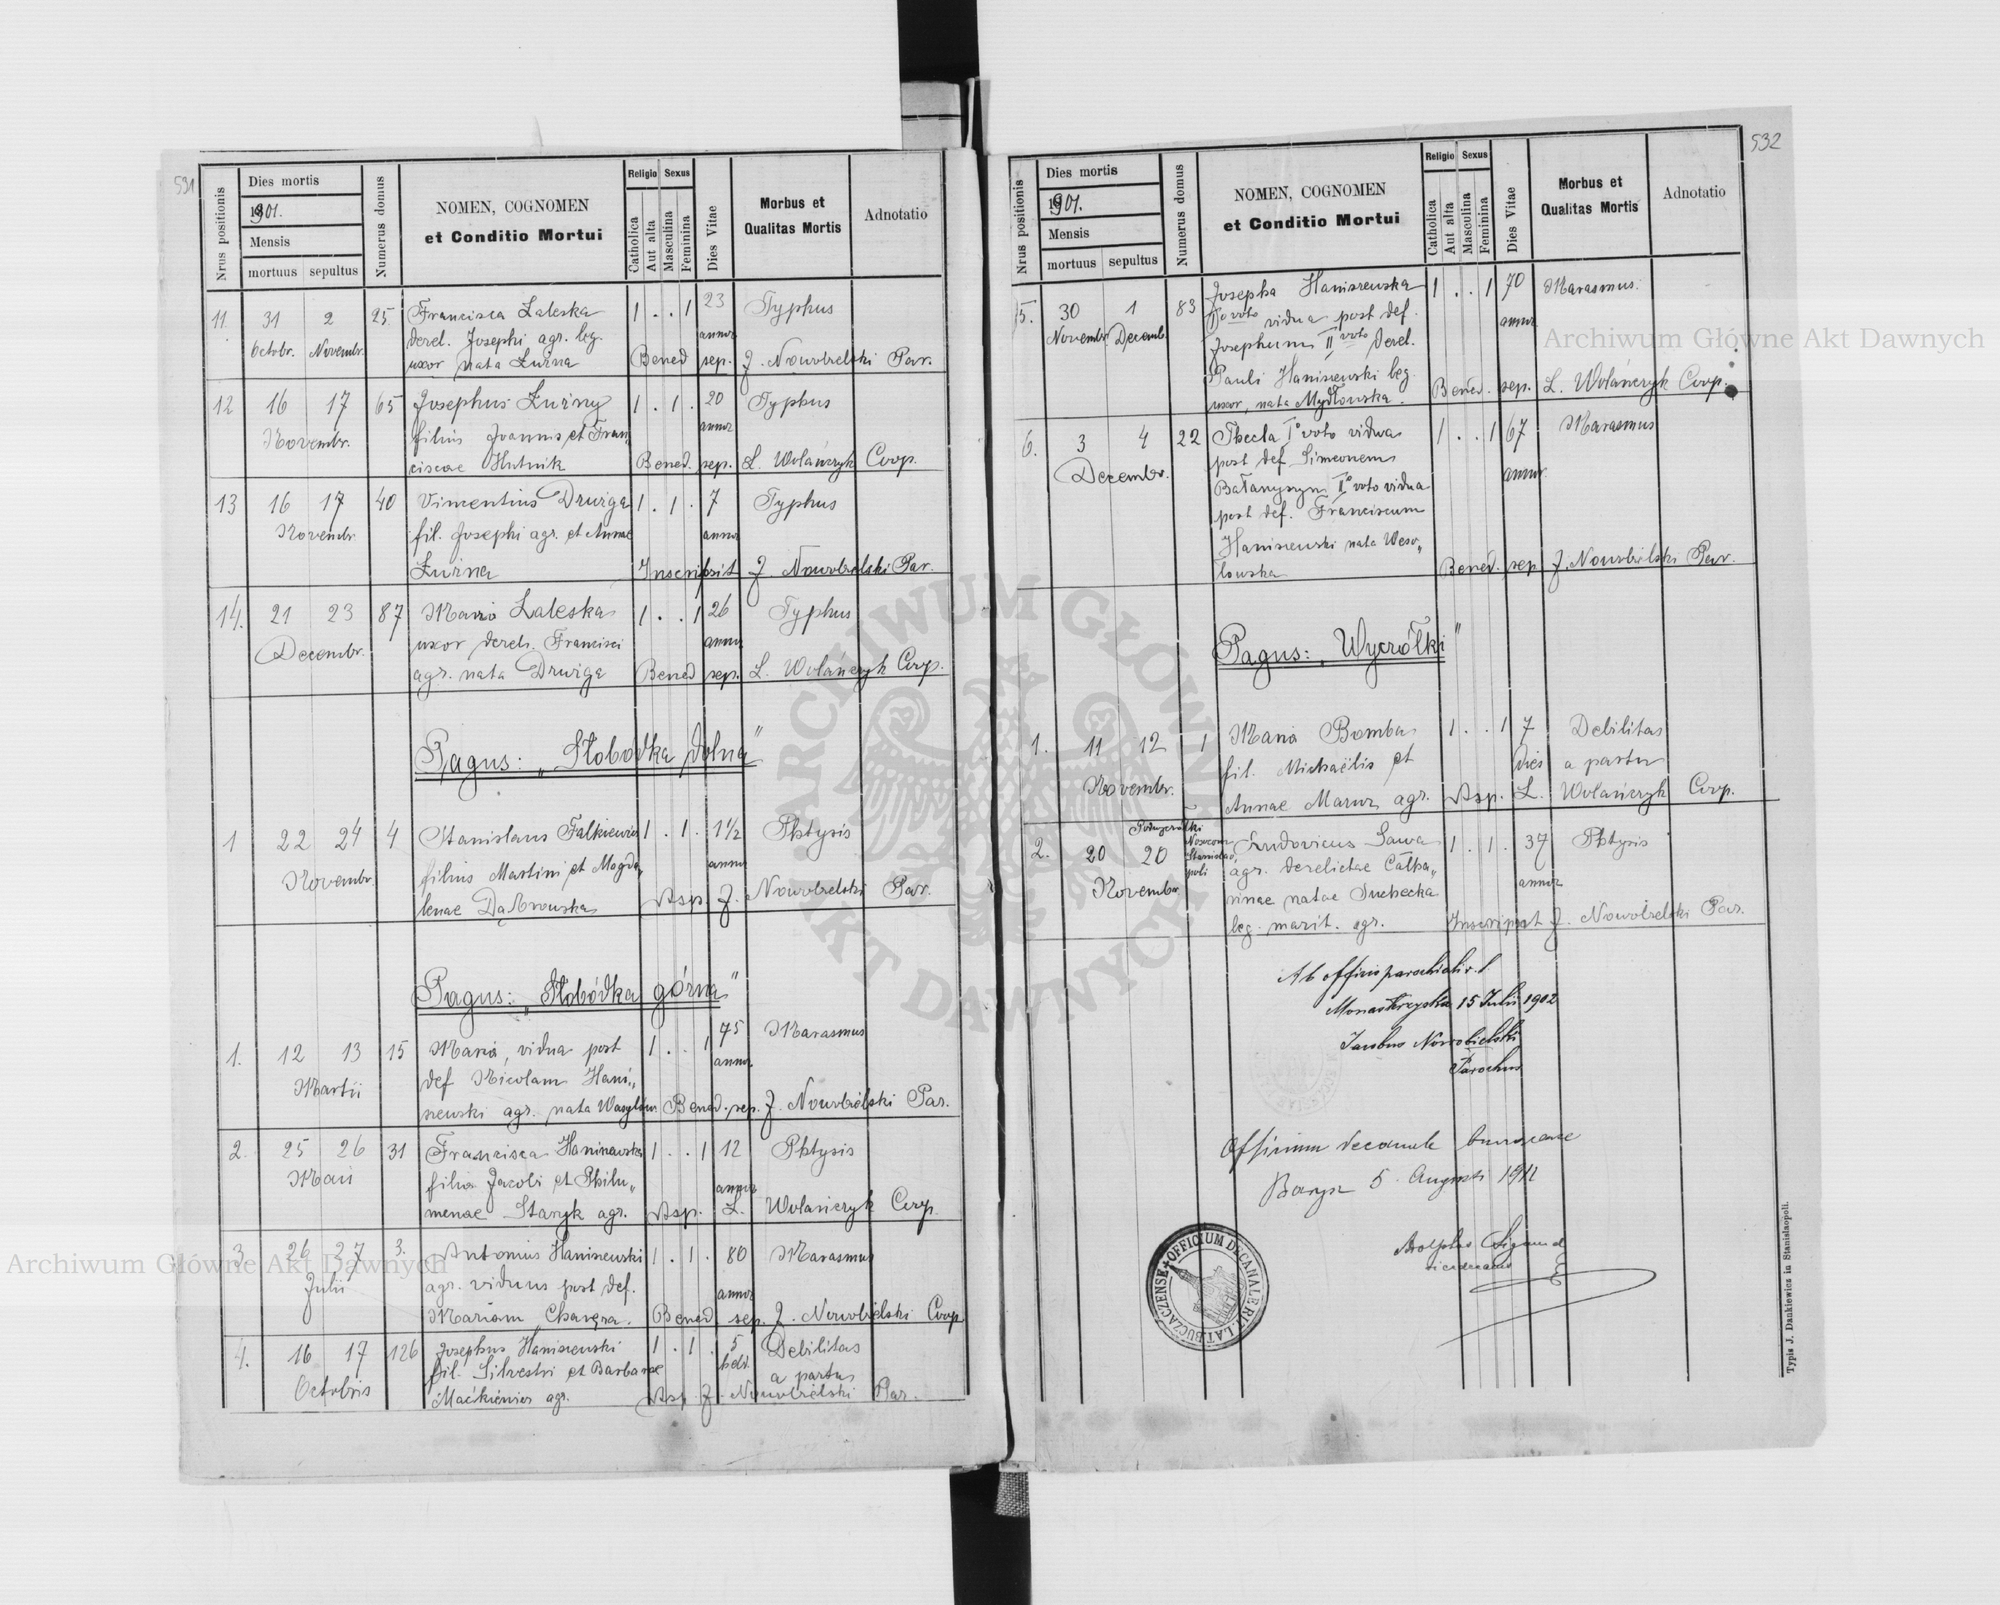 531
Nrus positionis
Dies mortis
1901.
Mensis
mortuus sepultus
Numerus domus
NOMEN, COGNOMEN
et Conditio Mortui
Religio Sexus
Catholica
Aut alta
Masculina
Feminina
Dies Vitae
Morbus et
Qualitas Mortis
Adnotatio
11. 31 2 25. Francisca Zaleska 1 . . 1 23 Typhus
Octobr. Novembr. derel. Josephi agr. leg. annor
uxor nata Zużna Bened sep. J. Nowobielski Par.
12 16 17 65 Josephus Zużny 1 . 1 . 20 Typhus
Novembr. filius Joannis et Fran„ annor
ciscae Hutnik Bened. sep. L. Wolańczyk Coop.
13 16 17 40 Vincentius Drwięga 1 . 1 . 7 Typhus
Novembr. fil. Josephi agr. et Annae annor
Zużna Inscripsit J. Nowobielski Par.
14. 21 23 87 Maria Zaleska 1 . . 1 26 Typhus
Decembr. uxor derel. Francisci annor
agr. nata Drwięga Bened sep. L. Wolańczyk Coop.
Pagus: „Słobódka dolna"
1 22 24 4 Stanislaus Falkiewicz 1 . 1 . 1½ Phtysis
Novembr. filius Martini et Magda„ annor
lenae Dąbrowska Asp. J. Nowobielski Par.
Pagus: „Słobódka górna"
1. 12 13 15 Maria, vidua post 1 . . 1 75 Marasmus
Martii def Nicolaum Hani„ annor
szewski agr. nata Wasylów Bened. sep. J. Nowobielski Par.
2. 25 26 31 Francisca Haniszewska 1 . . 1 12 Phtysis
Maii filia Jacobi et Philu„ annor
menae Staryk agr. Asp. L. Wolańczyk Coop.
3. 26 27 3. Antonius Haniszewski 1 . 1 . 80 Marasmus
Julii agr. viduus post def. annor
Mariam Bened sep. J. Nowobielski Coop
4. 16 17 126 Josephus Haniszewski 1 . 1 . 5 Debilitas
Octobris fil. Silvestri et Barbarae hebd. a partu
Maćkiewicz agr. Asp. J. Nowobielski Par.
532
Nrus positionis
Dies mortis
1901.
Mensis
mortuus sepultus
Numerus domus
NOMEN, COGNOMEN
et Conditio Mortui
Religio Sexus
Catholica
Aut alta
Masculina
Feminina
Dies Vitae
Morbus et
Qualitas Mortis
Adnotatio
5. 30 1 83 Josepha Haniszewska 1 . . 1 70 Marasmus.
Novembr. Decemb. Io voto vidua post def. annor
Josephum II voto derel.
Pauli Haniszewski leg.
uxor, nata Mydłowska. Bened. sep. L. Wolańczyk Coop.
6. 3 4 22 Thecla I° voto vidua 1 . . 1 67 Marasmus
Decembr. post def Simeonem annor.
Bałanyszyn II° voto vidua
post def. Franciscum
Haniszewski nata Weso„
łowska Bened. sep J. Nowobielski Par.
Pagus: „Wyczółki"
1. 11 12 1 Maria Bomba 1 . . 1 7 Debilitas
Novembr. fil. Michaëlis et dies a partu
Annae Marusz agr. Asp. L. Wolańczyk Coop.
2. 20 20 Nosocom. Stanislao„poli Ludovicus Sawa 1 . 1 . 37 Phtysis
Novembr. agr. derelictae Catha„ annor
rinae natae Suchecka
leg. marit. agr. Inscripsit J. Nowobielski Par.
Ab officio parochiali r. l.
Monasterzyska 15 Julii 1902
Jacobus Nowobielski
Parochus
Officium decanale Buczacense
Barysz 5. Augusti 1902
vicedecanus
+ OFFICIUM DECANALE RIT. LAT. BUCZACZENSE
Typis J. Dankiewicz in Stanislaopoli.
Archiwum Główne Akt Dawnych
Archiwum Główne Akt Dawnych
ARCHIWUM GŁÓWNE AKT DAWNYCH